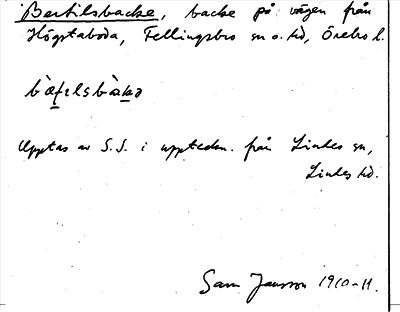 Bertilsbacke, backe på vägen från
Högstaboda, Fellingsbro sn o. hd, Örebro l.
bà̱ṯɩlsbàkə
Upptas av S.J. i uppteckn. från Lindes sn,
Lindes hd.
Sam Jansson 1910-11.